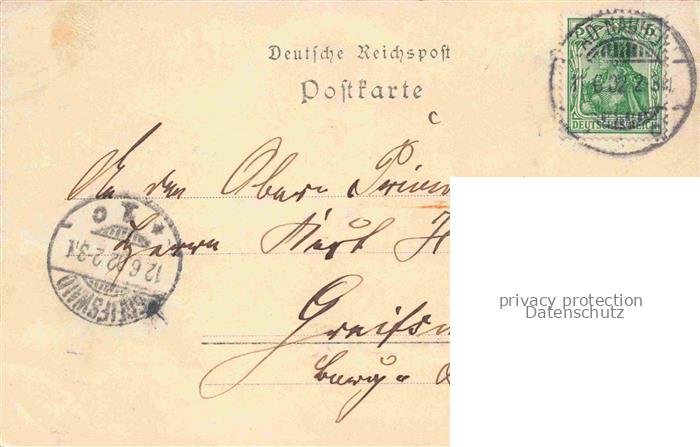 Deutsche Reichspost
Postkarte
DEUTSCHES REICH
An den Ober- Prima
Herrn Kurt H
Greifsw
Burg-
GREIFSWALD
12.6.02.2-3N.
privacy protection
Datenschutz